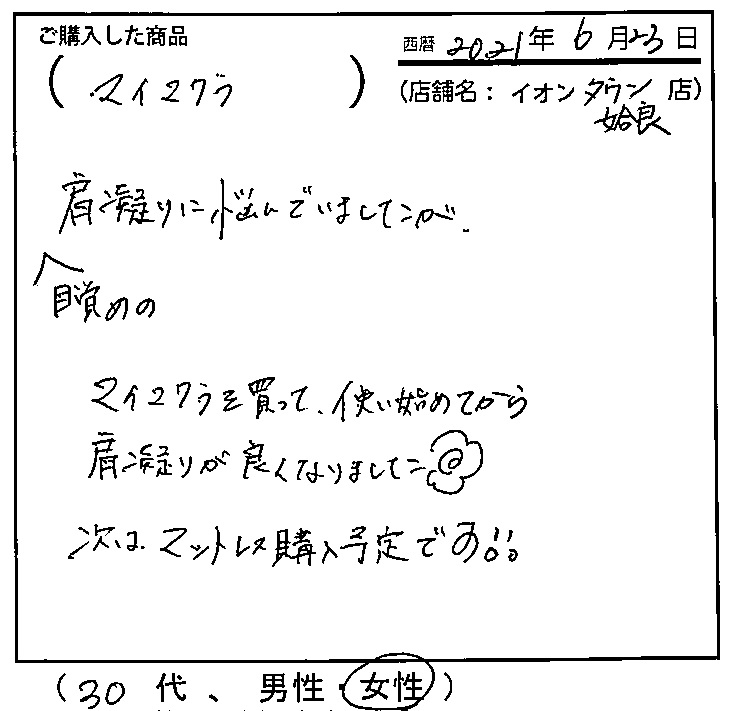 ご購入した商品
西暦 2021年 6月23日
(マイマクラ)
(店舗名：イオンタウン 店)
姶良
肩凝りに悩んでいましたが、
目覚めの
マイマクラを買って、使い始めてから
肩凝りが良くなりました
次は、マットレス購入予定です!!
(30代、男性・女性)